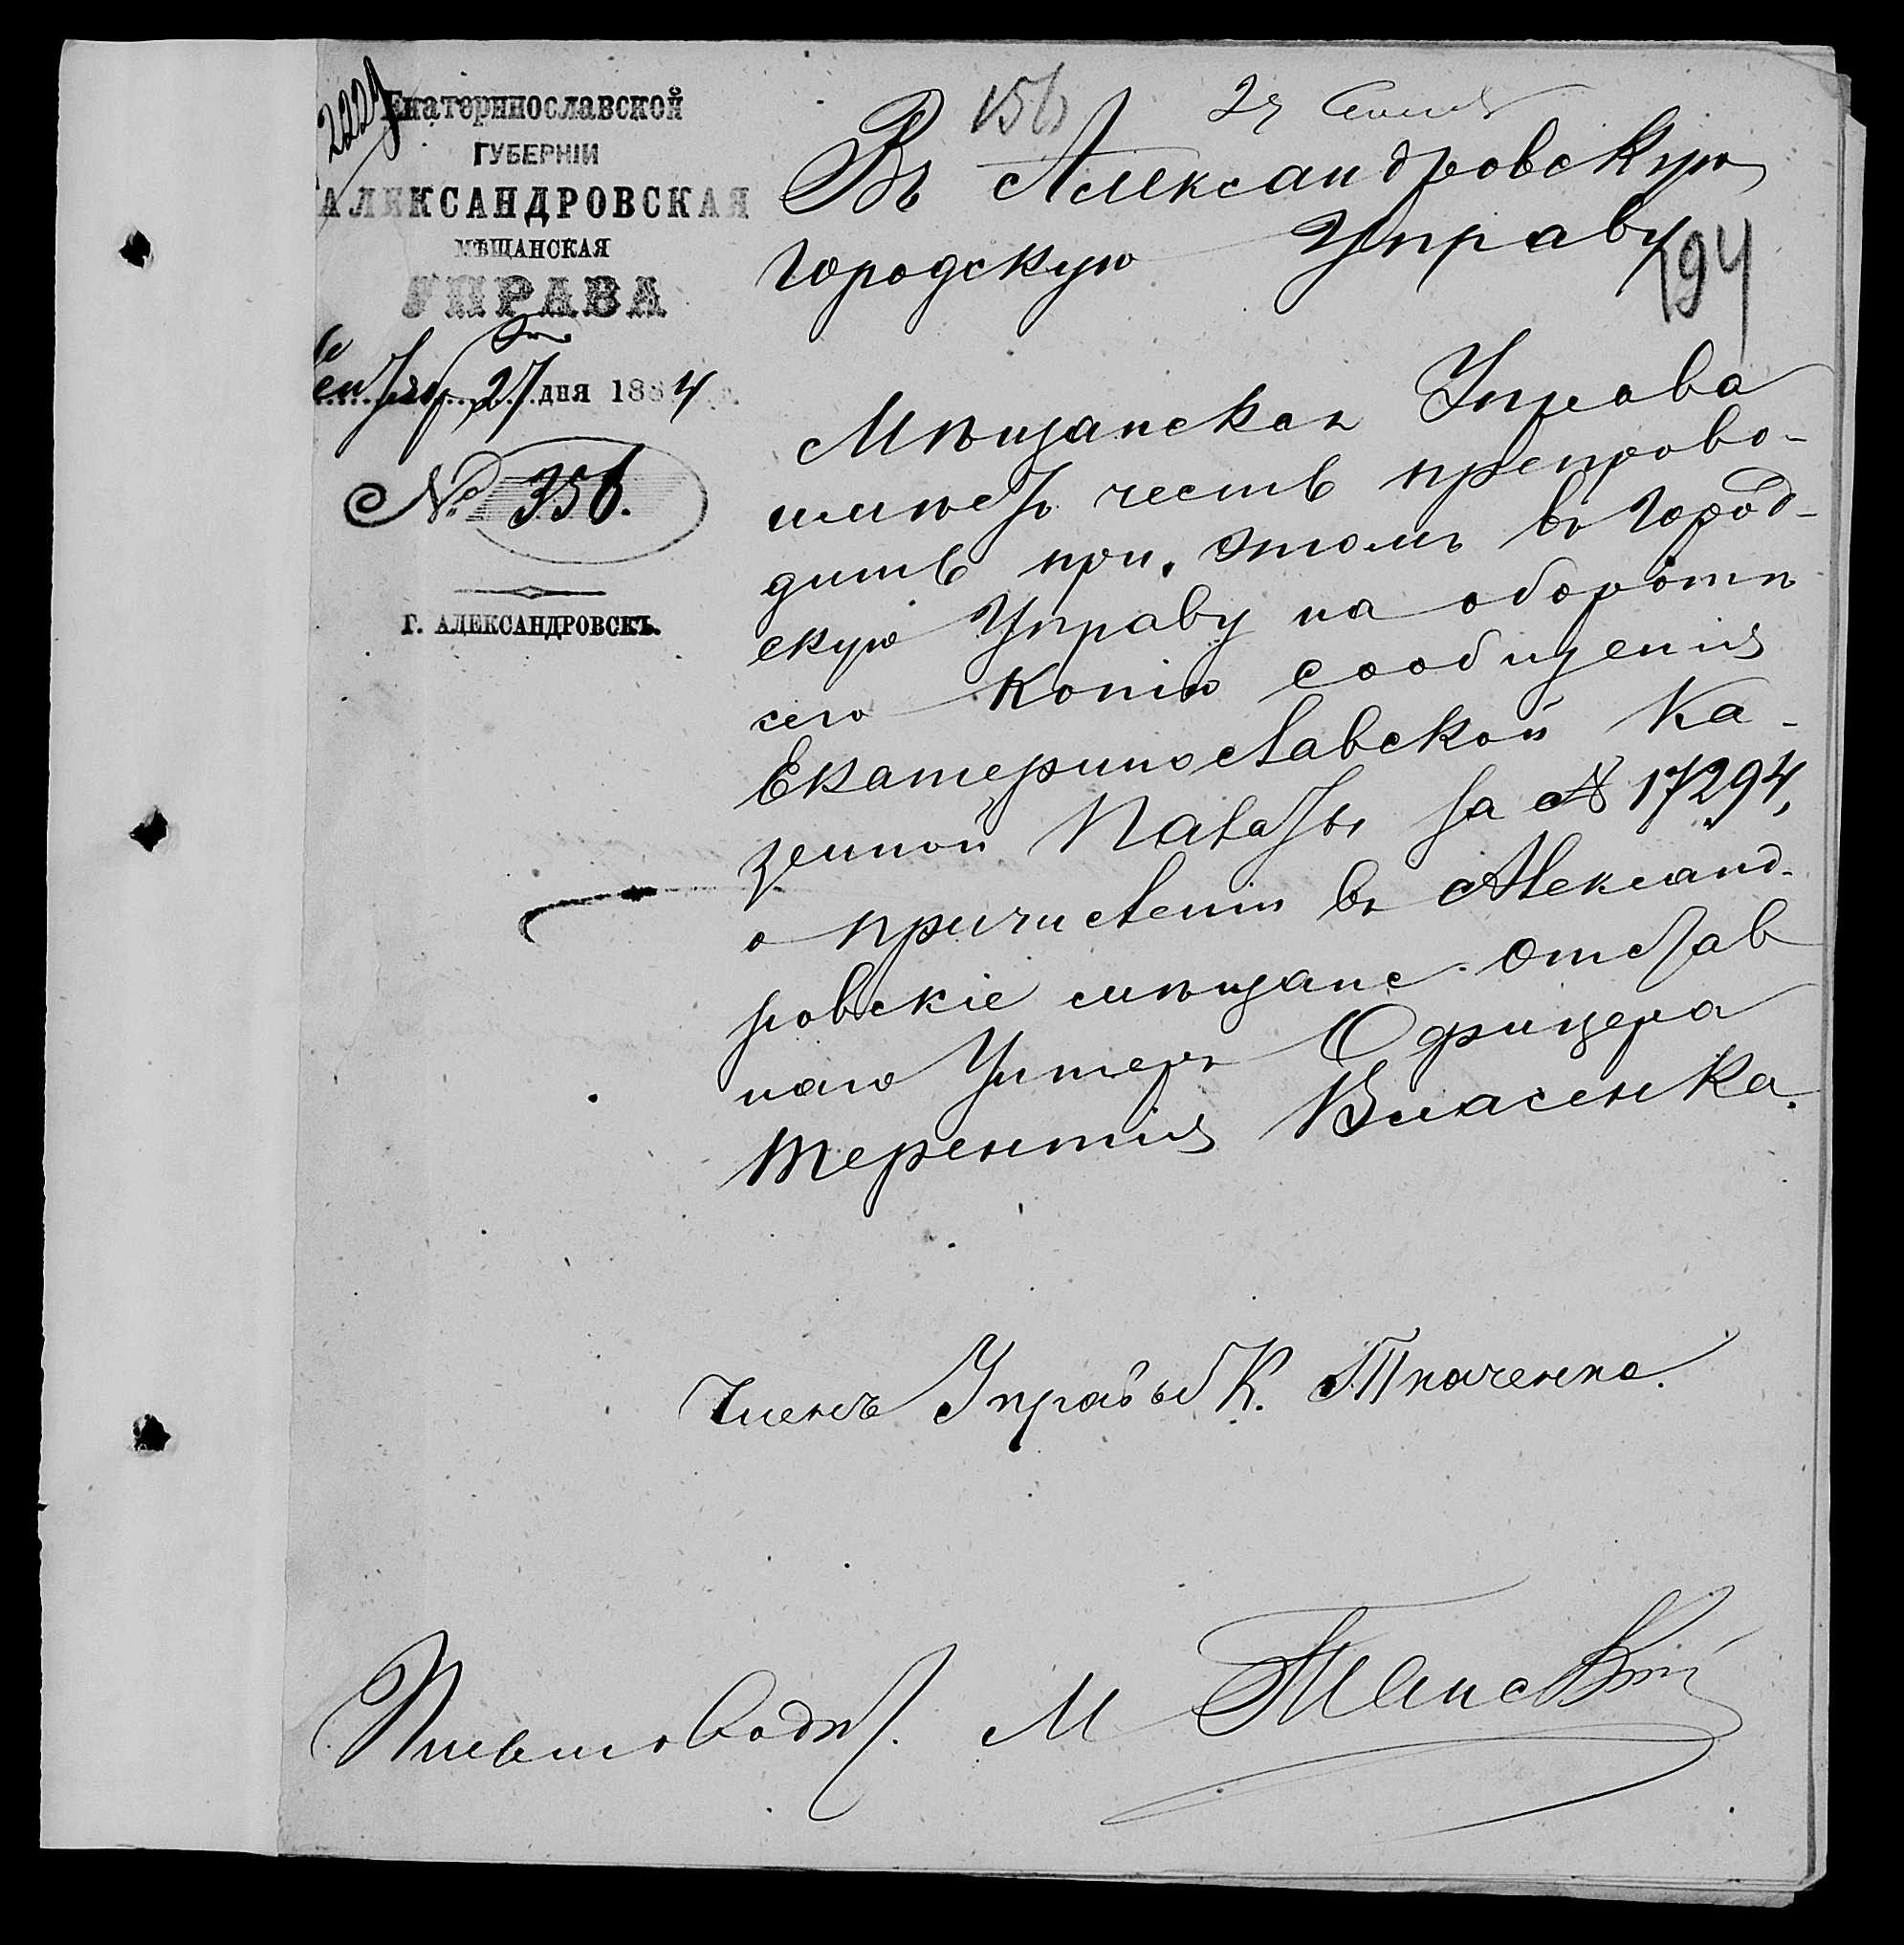 2224
Екатеринославской
ГУБЕРНІИ
АЛЕКСАНДРОВСКАЯ
МѢЩАНСКАЯ
УПРАВА
Сентября 27 дня 1884 г.
№ 356.
Г. АЛЕКСАНДРОВСКЪ.
156
Въ Александровскую
Городскую Управу
194
Мѣщанская Управа
имѣетъ честь препрово-
дить при этомъ въ Город-
скую Управу на оборотѣ
сего копію сообщенія
Екатеринославской Ка-
зенной Палаты за № 17294,
о причисленіи въ Александ-
ровскіе мѣщане отстав
наго Унтеръ Офицера
Терентія Власенка.
Членъ Управы К. Ткаченко.
Письмоводит. М Танскій